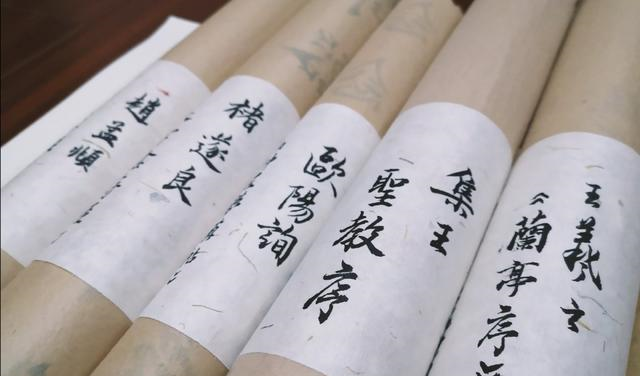 王羲之
《蘭亭序
集王
聖教序
歐陽詢
褚遂良
趙孟頫